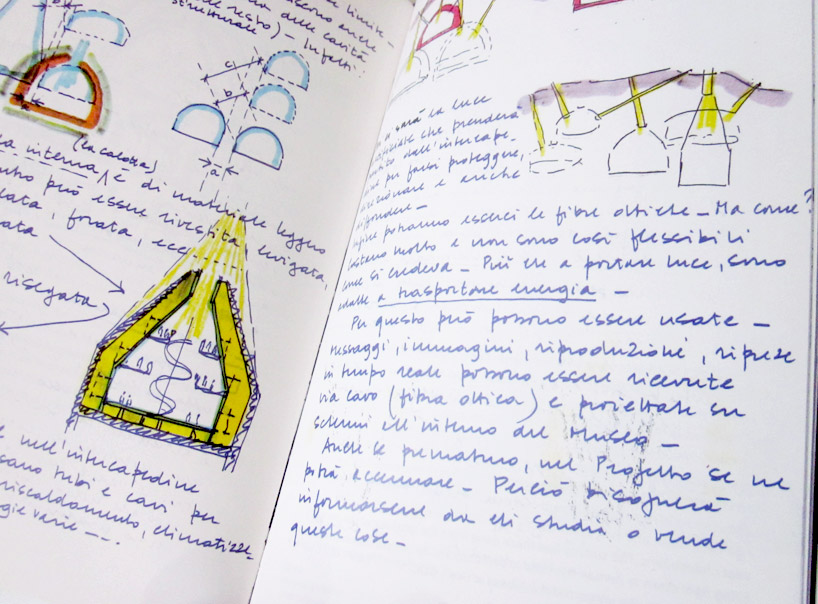 strutturale
a delle cavità
di resto) - Infatti:
c
b
a
(la calotta)
interna, è di materiale leggero
può essere rivestita, levigata,
forata, ecc
risegata
nell'intercapedine
tubi e cavi per
riscaldamento, climatizza-
varie - - .
sarà la luce
che prenderà
dall'intercape-
per farsi proteggere,
e anche
diffondere -
potranno esserci le fibre ottiche - Ma come?
costano molto e non sono così flessibili
come si credeva - Più che a portare luce, sono
adatte a trasportare energia -
Per questo può possono essere usate -
messaggi, immagini, riproduzioni, riprese
in tempo reale possono essere ricevute
via cavo (fibra ottica) e proiettate su
schermi all'interno del Museo -
Anche se prematuro, nel Progetto se ne
potrà accennare - Perciò bisognerà
informarsene da chi studia o vende
queste cose -